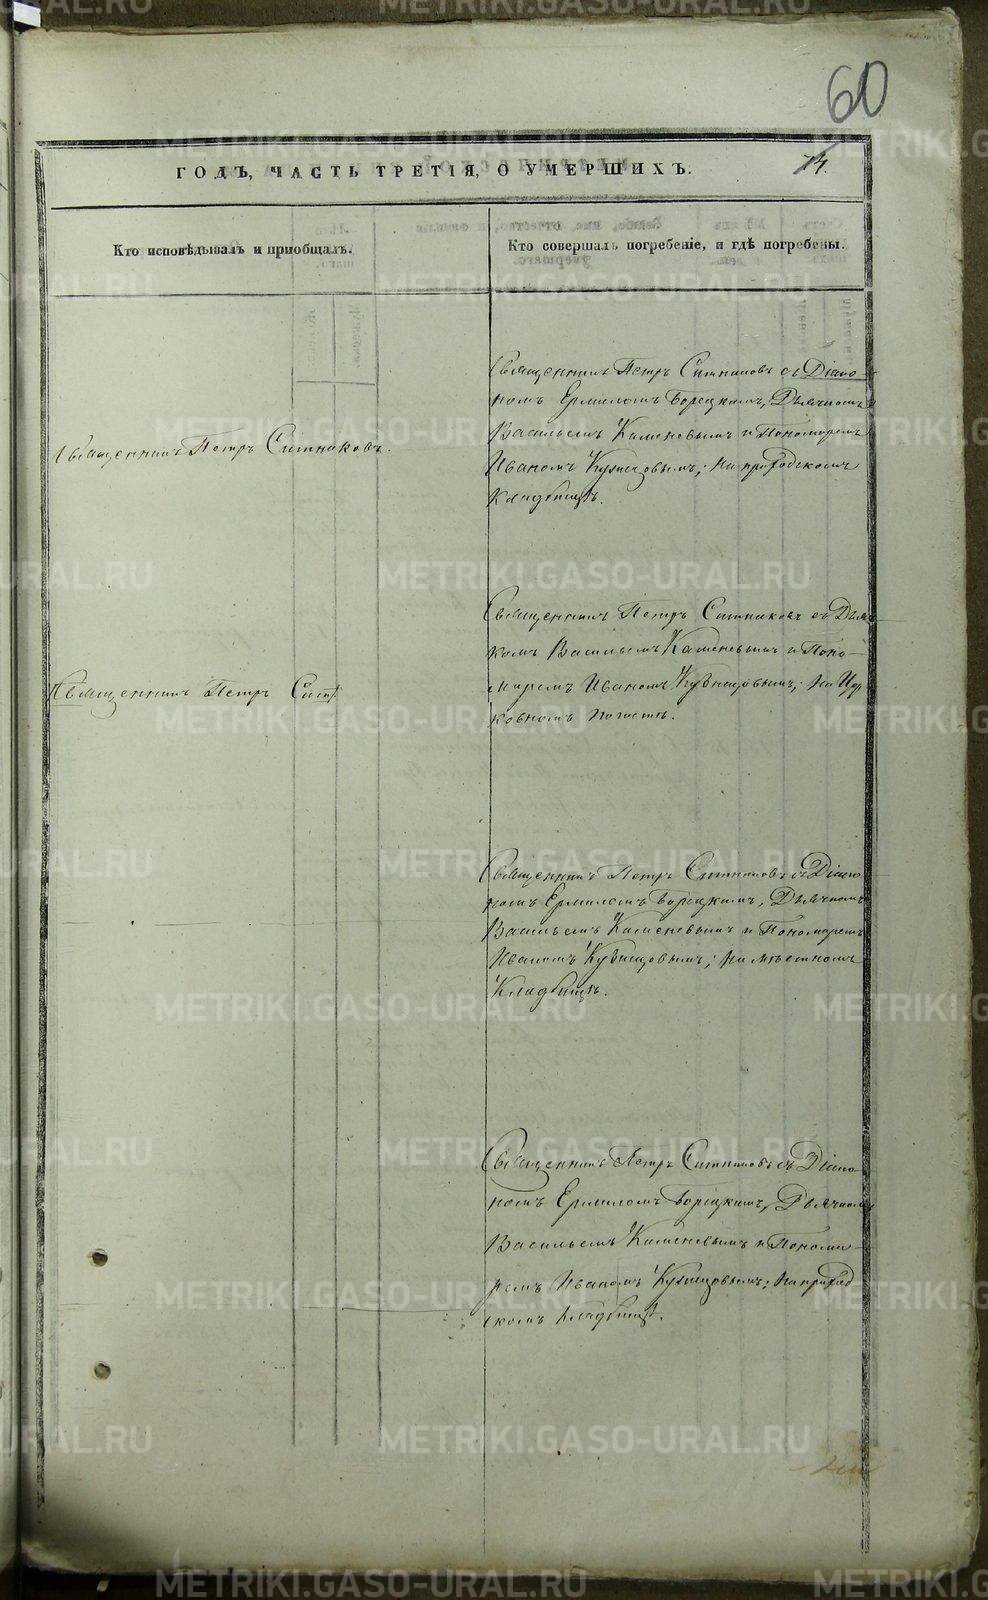 60
ГОДЪ, ЧАСТЬ ТРЕТІЯ, О УМЕРШИХЪ.
74.
Кто исповѣдывалъ и приобщалъ.
Кто совершалъ погребеніе, и гдѣ погребены.
Священникъ Петръ Ситниковъ съ Діако
номъ Ермиломъ Борецкимъ, Дьячкомъ
Васильемъ Каменевымъ и Пономаремъ
Иваномъ Кузнецовымъ; на приходскомъ
кладбищѣ.
Священникъ Петръ Ситниковъ.
Священникъ Петръ Ситниковъ съ Дьяч
комъ Васильемъ Каменевымъ и Поно-
маремъ Иваномъ Кузнецовымъ; на Цер
ковномъ погостѣ.
Священникъ Петръ Сит
Священникъ Петръ Ситниковъ съ Діако
номъ Ермиломъ Борецкимъ, Дьячкомъ
Васильемъ Каменевымъ и Пономаремъ
Иваномъ Кузнецовымъ; на мѣстномъ
Кладбищѣ.
Священникъ Петръ Ситниковъ съ Діако
номъ Ермиломъ Борецкимъ, Дьячкомъ
Васильемъ Каменевымъ и Понома-
ремъ Иваномъ Кузнецовымъ; на приход
скомъ кладбищѣ.
METRIKI.GASO-URAL.RU